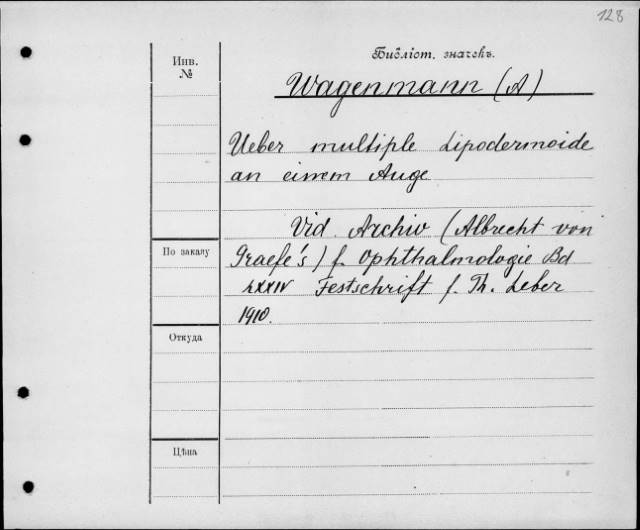 128
Библіот. значекъ.
Инв.
№
Wagenmann (A)
Ueber multiple Lipodermoide
an einem Auge
Vid. Archiv (Albrecht von
Graefe's) f. Ophthalmologie Bd
LXXIV Festschrift f. Th. Leber
1910.
По закалу
Откуда
Цѣна